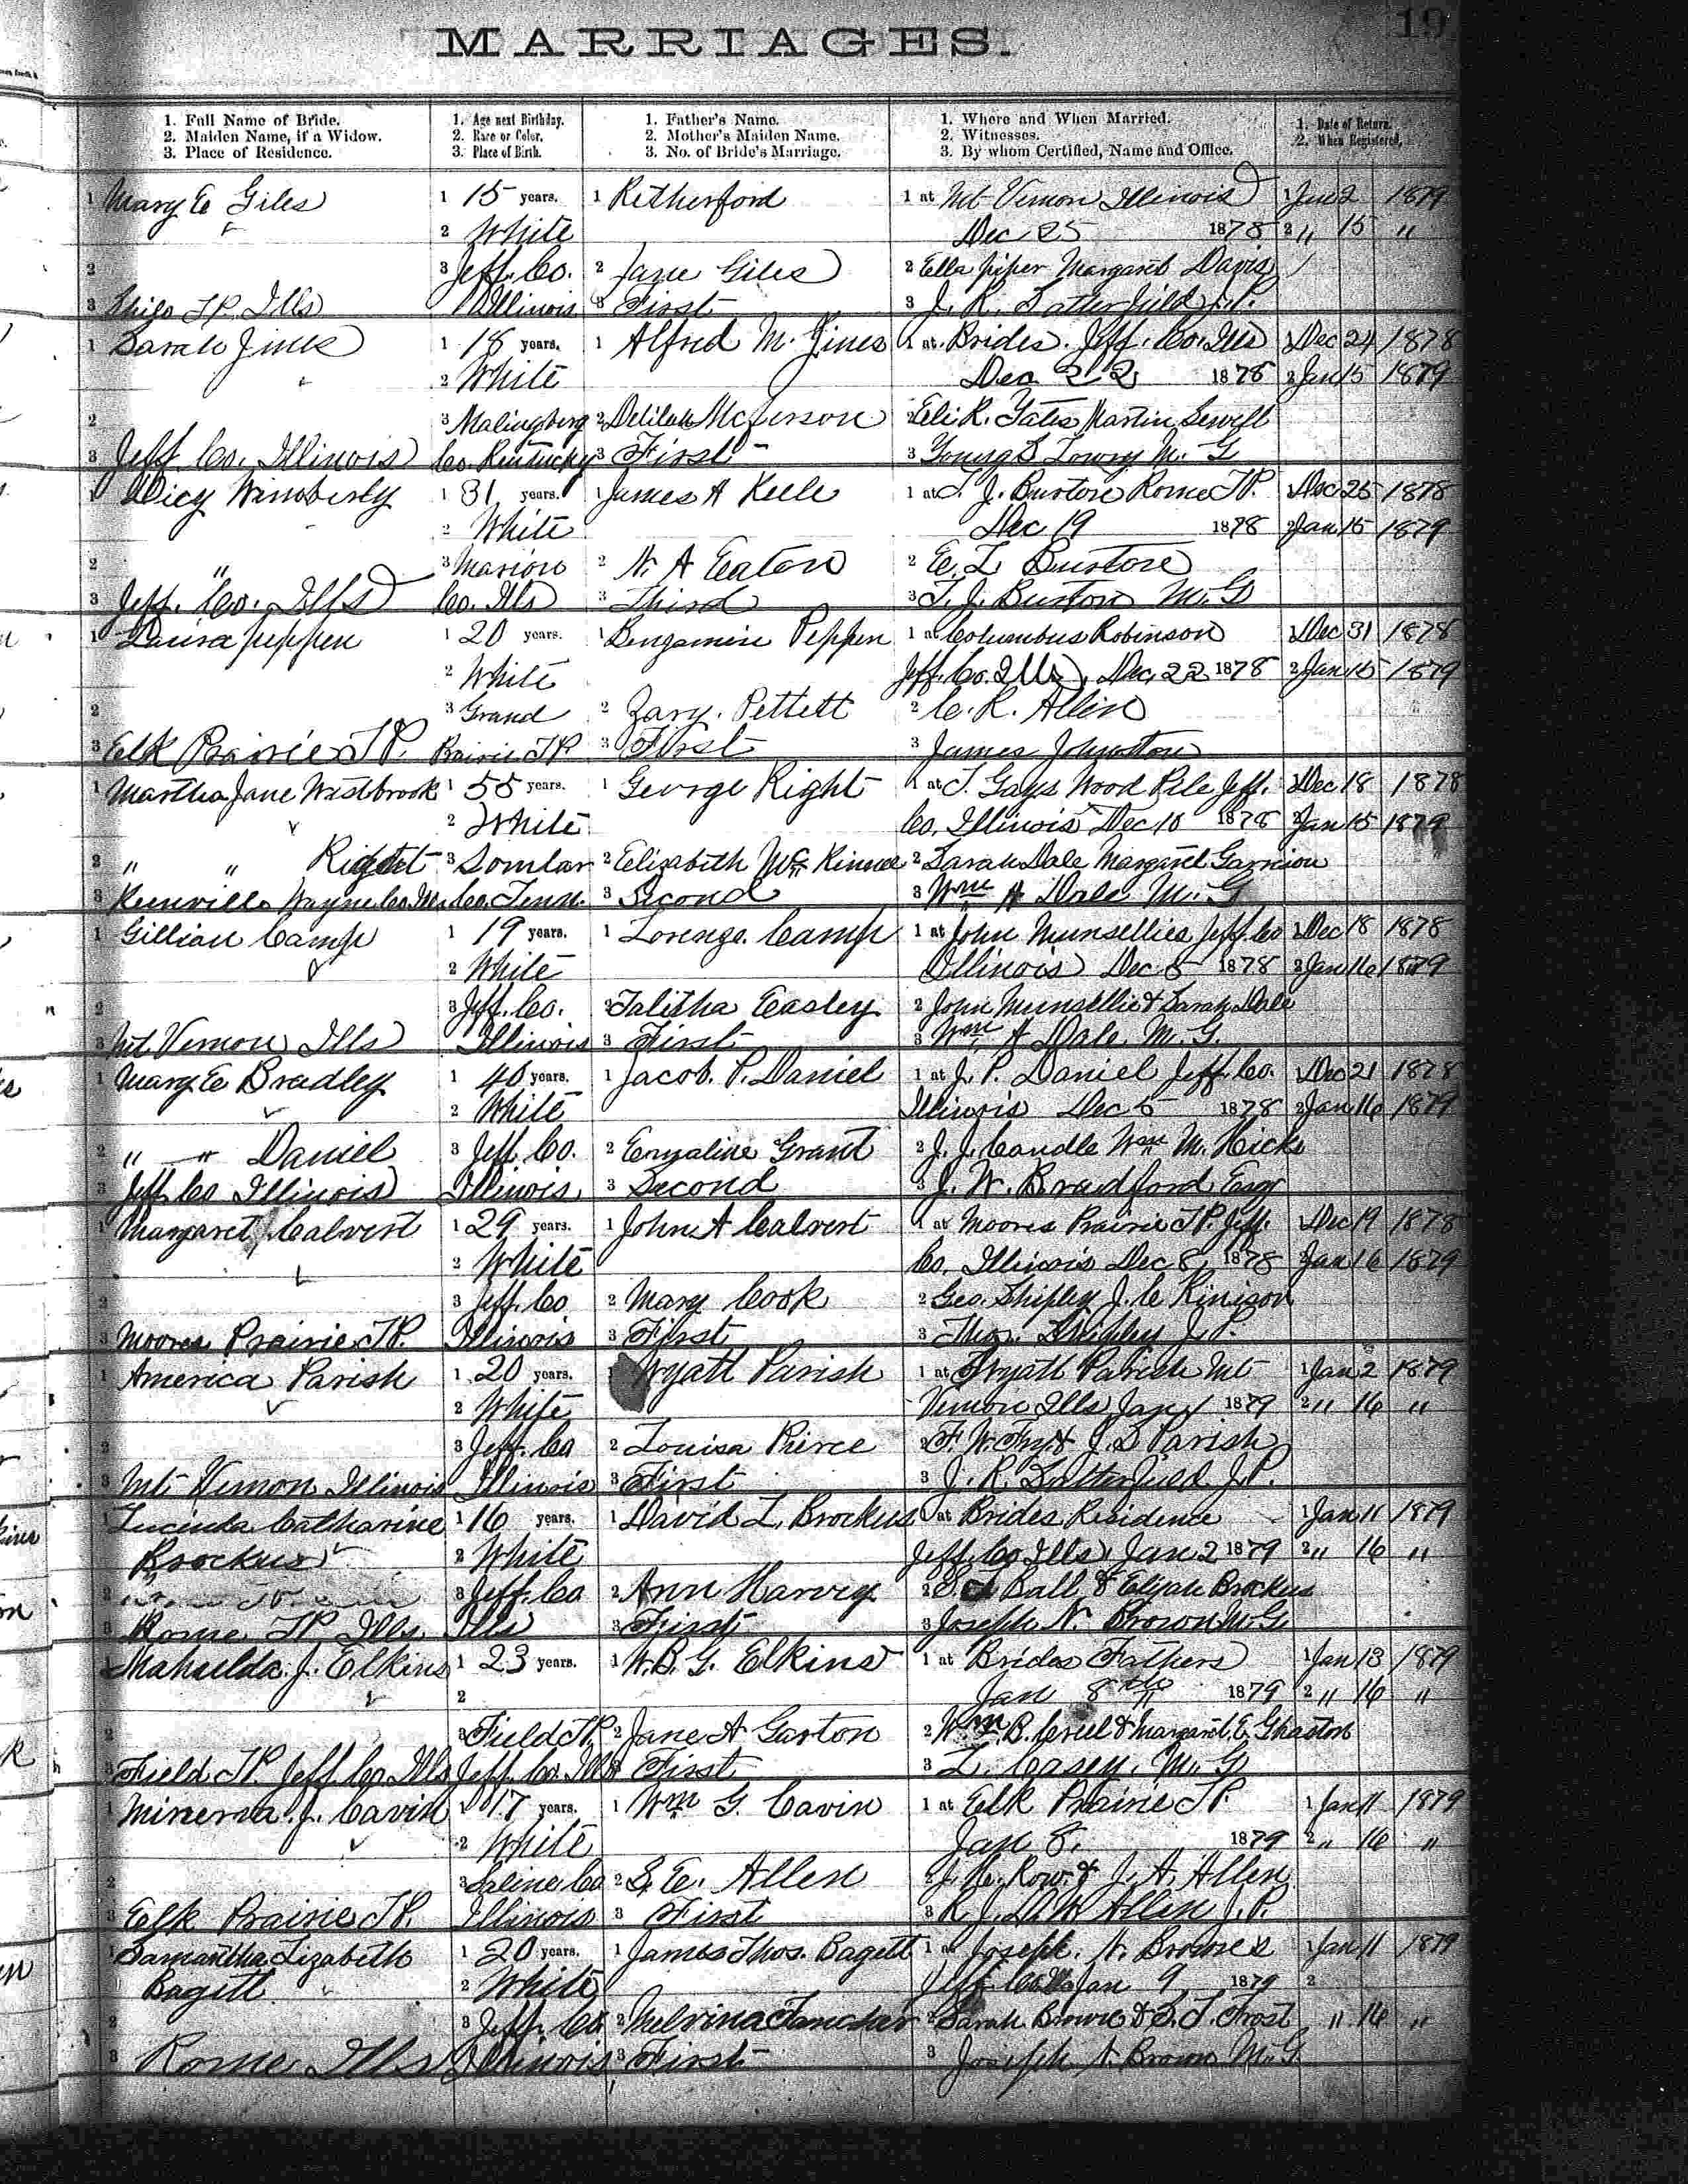 19
MARRIAGES.
1. Full Name of Bride. 1. Age next Birthday. 1. Father's Name. 1. Where and When Married. 1. Date of Return.
2. Maiden Name, if a Widow. 2. Race or Color. 2. Mother's Maiden Name. 2. Witnesses. 2. When Registered.
3. Place of Residence. 3. Place of Birth. 3. No. of Bride's Marriage. 3. By whom Certified, Name and Office.
1 Mary E Giles 1 15 years. 1 Retherford 1 at Mt Vernon Illinois 1 Jan 2 1879
2 White Dec 25 1878 2 " 15 "
2 3 Jeff. Co. 2 Jane Giles 2 Ella piper Margaret Davis
3 Shilo TP. Ills Illinois 3 First 3 J. R. Satterfield J.P.
1 Sarah Jines 1 18 years. 1 Alfred M. Jines 1 at Brides. Jeff. Co. Ills 1 Dec 24 1878
2 White Dec 22 1878 2 Jan 15 1879
2 3 2 Delilah 2 Eli R. Yates Martin Sewell
3 Jeff Co. Illinois Co. Kentucky 3 First 3 Young S Lowry M. G
1 Dicy Wimberly 1 31 years. 1 James A Keele 1 at T. J. Burton Rome TP. 1 Dec 25 1878
2 White Dec 19 1878 2 Jan 15 1879
2 " 3 Marion 2 N. A Eaton 2 E. L Burton
3 Jeff. Co. Ills Co. Ills 3 Third 3 T. J. Burton M. G
1 Laura peppen 1 20 years. 1 Bengamin Peppen 1 at Columbus Robinson 1 Dec 31 1878
2 White Jeff. Co. Ills, Dec. 22 1878 2 Jan 15 1879
2 3 Grand 2 Zary. Pettett 2 C. R. Allen
3 Elk Prairie TP. Prairie TP 3 First 3 James Johnston
1 Martha Jane Westbrook 1 55 years. 1 George Right 1 at T. Gays Wood Pile Jeff. 1 Dec 18 1878
2 White Co. Illinois Dec 10 1878 2 Jan 15 1879
2 " " Right 3 2 Elizabeth Mc Kinnee 2 Sarah Dale Margaret Garrison
3 Keenville Wayne Co. Ills Co. Tenn. 3 Second 3 Wm A Dale M. G
1 Gillian Camp 1 19 years. 1 Lorenzo Camp 1 at John Munsellies Jeff. Co 1 Dec 18 1878
2 White Illinois Dec 5 1878 2 Jan 16 1879
2 3 Jeff. Co. 2 Talitha Easley 2 John Munsellie & Sarah Dale
3 Mt Vernon Ills Illinois 3 First 3 Wm A Dale M. G.
1 Mary E Bradley 1 40 years. 1 Jacob. P. Daniel 1 at J. P. Daniel Jeff. Co. 1 Dec 21 1878
2 White Illinois Dec 5 1878 2 Jan 16 1879
2 " " Daniel 3 Jeff. Co. 2 Emaline Grant 2 J. J. Caudle Wm M. Hicks
3 Jeff. Co Illinois Illinois 3 Second 3 J. W. Bradford Esq
1 Margaret Calvert 1 29 years. 1 John A Calvert 1 at Moores Prairie TP. Jeff. 1 Dec 19 1878
2 White Co. Illinois Dec 8, 1878 2 Jan 16 1879
2 3 Jeff. Co 2 Mary Cook 2 Geo. Shipley J. C Kinison
3 Moores Prairie TP. Illinois 3 First 3 Thos. Shipley J. P.
1 America Parish 1 20 years. Wyatt Parish 1 at Wyatt Parish Mt 1 Jan 2 1879
2 White Vernon Ills Jan 1 1879 2 " 16 "
2 3 Jeff. Co 2 Louisa Pierce 2 F. W. Fry & J. S Parish
3 Mt Vernon Illinois Illinois 3 First 3 J. R. Satterfield J.P.
1 Lucinda Catharine 1 16 years. 1 David L. Brockus 1 at Brides Residence 1 Jan 11 1879
Brockus 2 White Jeff. Co Ills Jan 2 1879 2 " 16 "
2 3 Jeff. Co 2 Ann Harvey 2 Ball & Elijah Brockus
3 Rome TP Ills Ills 3 First 3 Joseph N. Brown M. G
1 Mahulda. J. Elkins 1 23 years. 1 W. B. G. Elkins 1 at Brides Fathers 1 Jan 13 1879
2 Jan 8th 1879 2 " 16 "
2 3 Field TP. 2 Jane A Garton 2 Wm. B. Criel & Margaret E.
3 Field TP. Jeff Co Ills Jeff. Co. Ills 3 First 3 L. Casey, M. G
1 Minerva. J. Cavin 1 17 years. 1 Wm G. Cavin 1 at Elk Prairie TP. 1 Jan 11 1879
2 White Jan 8. 1879 2 " 16 "
2 3 Saline Co 2 S, E. Allen 2 Row & J. A. Allen
3 Elk Prairie TP. Illinois 3 First 3 R. J. D. W. Allen J. P.
1 Samantha Lizabeth 1 20 years. 1 James Thos. Bagett 1 at Joseph. N. Browns 1 Jan 11 1879
Bagett. 2 White Jeff Co Ills Jan 9 1879 2
2 3 Jeff. Co. 2 Melvina Fancher 2 Sarah Brown & S. T. Frost " 16 "
3 Rome Ills Illinois 3 First 3 Joseph N. Brown M. G